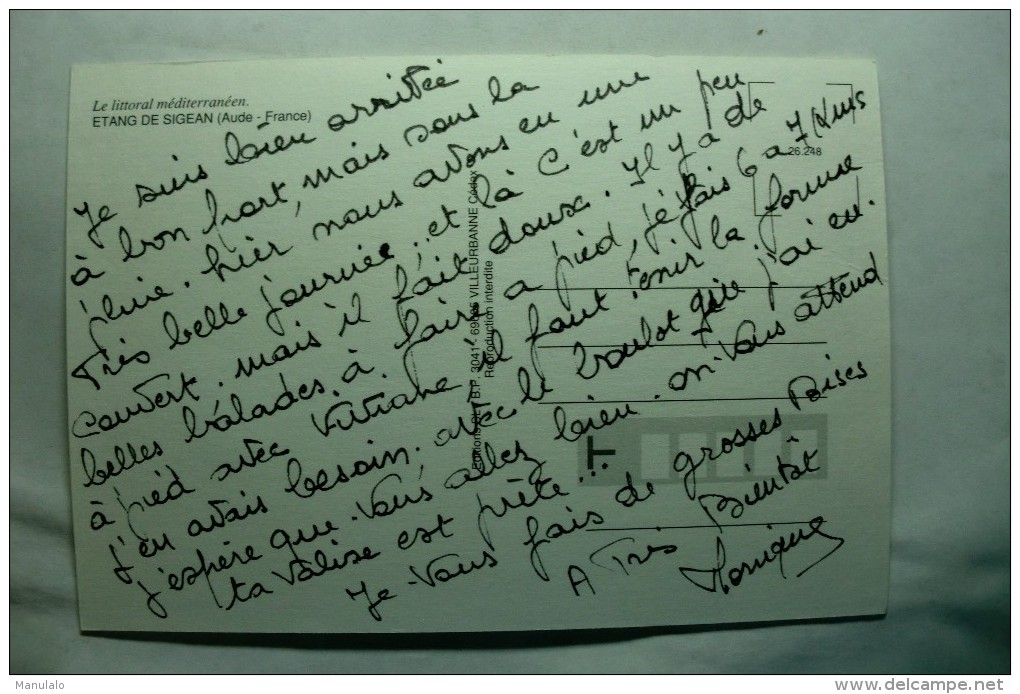 Le littoral méditerranéen.
ETANG DE SIGEAN (Aude - France)
Je suis bien arrivée
à bon port, mais sous la
pluie. hier nous avons eu une
Très belle journée, et là c'est un peu
couvert. mais il fait doux. Il y a de
belles balades à faire à pied, je fais 6 a 7 Kms
à pied avec il faut tenir la forme
j'en avais besoin. avec le boulot que j'ai eu.
j'espère que Vous allez bien. on Vous attend
ta Valise est prête..
Je Vous fais de grosses Bises
A Très Bientôt
Monique
Editions B.P. 3041 - 69605 VILLEURBANNE Cédex
Reproduction interdite
26.248
Manulalo
www.delcampe.net